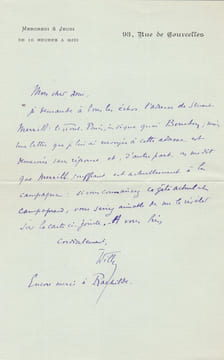 MERCREDI & JEUDI
DE 10 HEURES À MIDI
93, Rue de Courcelles
Mon cher Ami,
je demande à tous les échos l'adresse de Stuart
Merrill: le Tout-Paris indique quai Bourbon, mais
une lettre que je lui ai envoyée à cette adresse est
demeurée sans réponse et, d'autre part, on me dit
que Merrill souffrant est actuellement à la
campagne: si vous connaissez
vous seriez aimable de me le révéler
sur la carte ci-jointe. A vous bien
cordialement,
Willy
Encore merci à Rachilde.